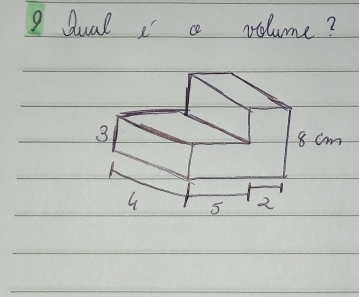 9 Qual é o volume?
3
8 cm
4
5
2